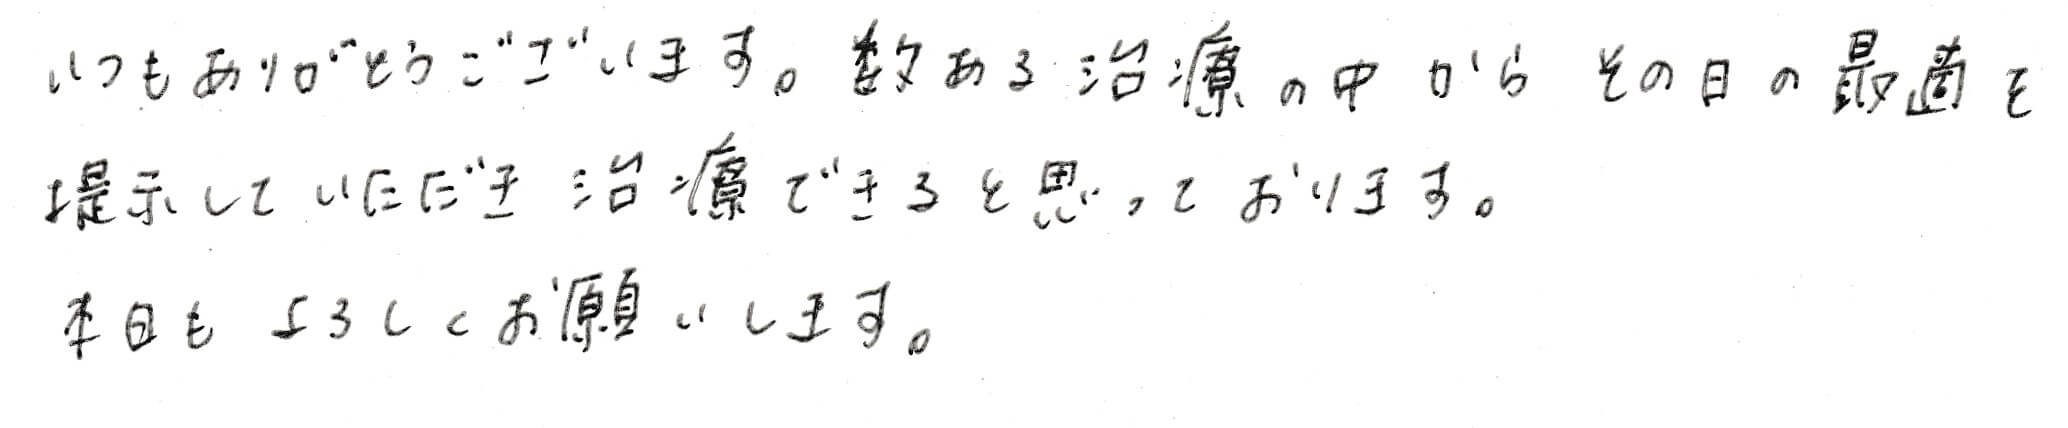 いつもありがとうございます。数ある治療の中からその日の最適を
提示していただき治療できると思っております。
本日もよろしくお願いします。